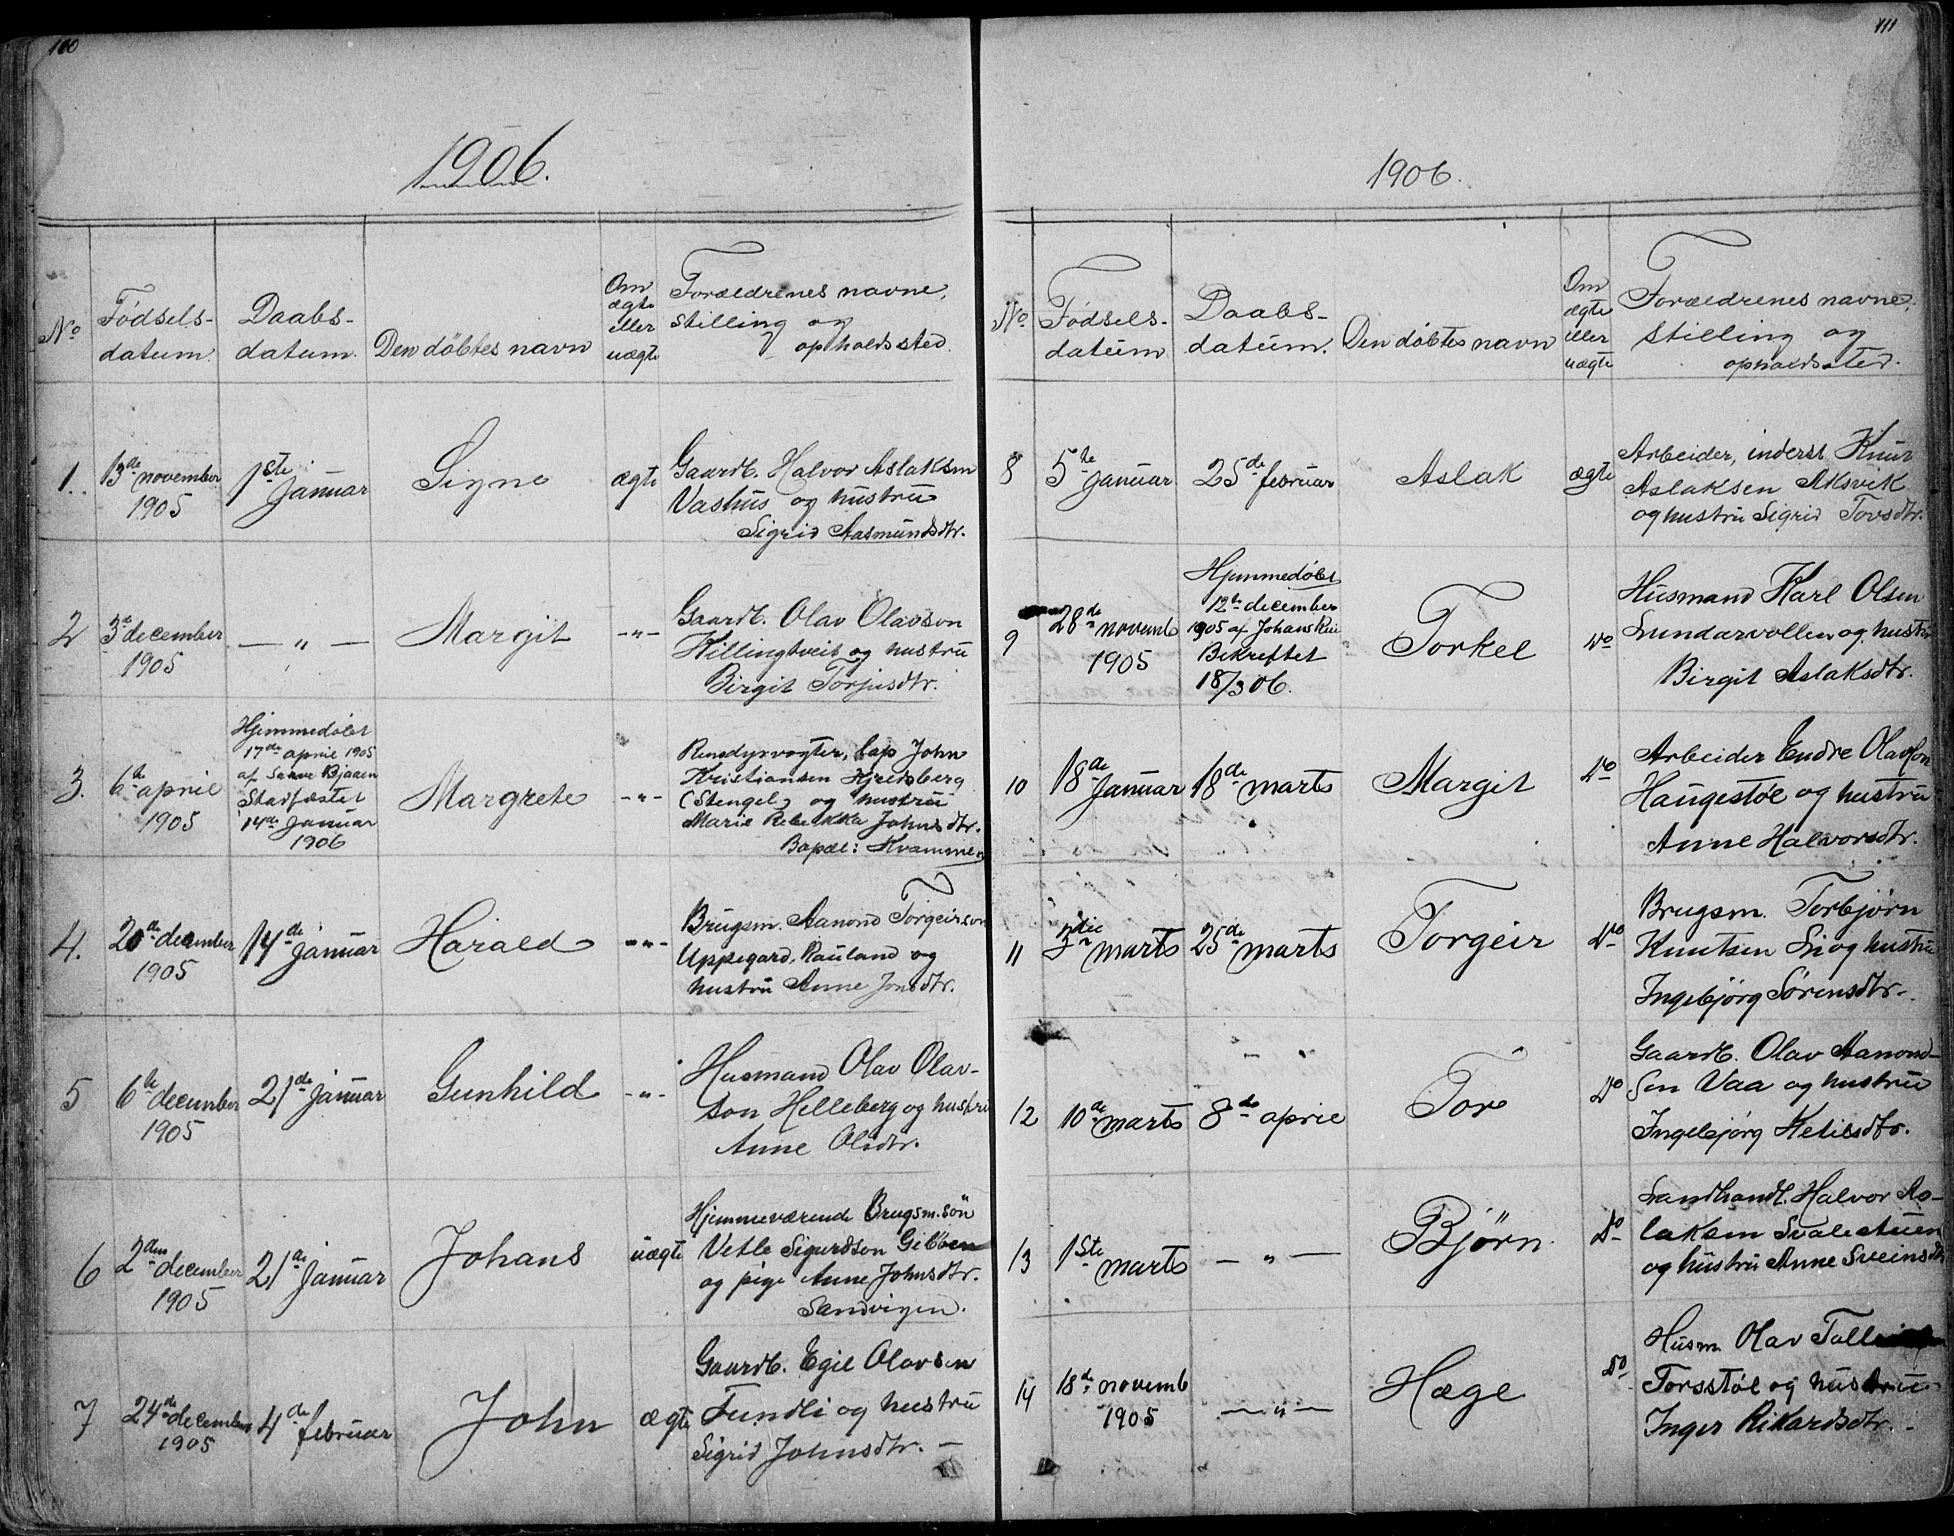 1906.
No
Fødsels-
datum.
Daabs-
datum.
Den døbtes navn
Om
ægte
eller
uægte
Forældrenes navne,
stilling og
opholdssted.
1.
13de november
1905
1ste
januar
Signe
ægte
Gaardb. Halvor Aslaksen
Vashus og hustru
Sigrid Aasmundsdtr.
2
3de december
1905
— " —
Margit
-"-
Gaardb. Olav Olavson
Killingtveit og hustru
Birgit Torjusdtr.
3.
6te april
1905
Hjemmedøbt
17de april 1905
af Bjaaen
Stadfæstet
14de januar
1906
Margrete
-"-
Rensdyrvogter, lap John
Kristiansen Hjeldsberg
(Stengel) og hustru
Marie Rebekka Johnsdtr.
Bopæl: Kvammen
4.
20de december
1905
14de januar
Harald
-"-
Brugsm. Aanond Torgeirson
Uppegard, Rauland og
hustru Anne Jonsdtr.
5
6te december
1905
21de januar
Gunhild
-"-
Husmand Olav Olav-
son Helleberg og hustru
Anne Olsdtr.
6
2den december
1905
21de januar
Johans
uægte
Hjemmeværende Brugsm.søn
Vetle Sigurdson Gibøen
og pige Anne Johnsdtr.
Sandvigen.
7
24de december
1905
4de februar
John
ægte
Gaardb. Egil Olavsen
Fundli og hustru
Sigrid Johnsdtr. —
111
1906.
No
Fødsels-
datum
Daabs-
datum.
Den døbtes navn
Om
ægte
eller
uægte
Forældrenes navne,
stilling og
opholdssted.
8
5te januar
25de februar
Aslak
ægte
Arbeider, inderst Knut
Aslaksen Aksvik
og hustru Sigrid Tovsdtr.
9
28de novemb
1905
Hjemmedøbt
12te december
1905 af Johans Rui
Bekreftet
18/3 06.
Torkel
do
Husmand Karl Olsen
Lundarvollen og hustru
Birgit Aslaksdtr.
10
18de januar
18de marts
Margit
do
Arbeider Endre Olavson
Haugestøl og hustru
Anne Halvorsdtr.
11
3die marts
25de marts
Torgeir
do
Brugsm. Torbjørn
Knutsen Li og hustru
Ingebjørg Sørensdtr.
12
10de marts
8de april
Tor
do
Gaardb. Olav Aanond-
sen Vaa og hustru
Ingebjørg Ketilsdtr.
13
1ste marts
— " —
Bjørn
do
Landhandl. Halvor As-
laksen Svalestuen
og hustru Anne Sveinsdtr
14
18de novemb
1905
— " —
Hæge
do
Husm. Olav
Torsstøl og hustru
Inger Rikardsdtr. -